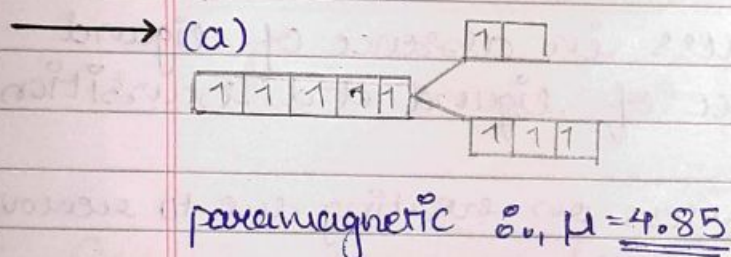 (a)
1
1 1 1 1 1
1 1 1
paramagnetic ∴, μ = 4.85